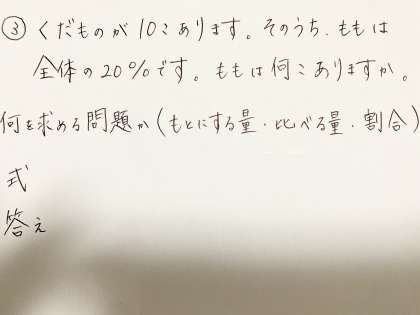 ③ くだものが10こあります。そのうち、ももは
全体の20%です。ももは何こありますか。
何を求める問題か(もとにする量・比べる量・割合)
式
答え